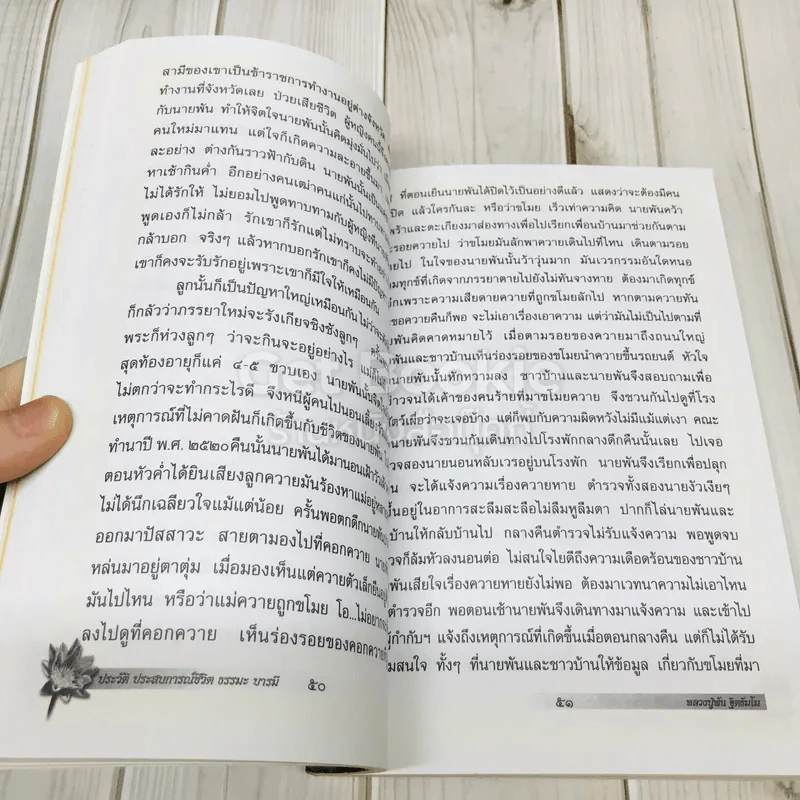 สามีของเขาเป็นข้าราชการทำงานอยู่ต่างจังหวัด
ทำงานที่จังหวัดเลย ป่วยเสียชีวิต ผู้หญิงคนนี้
กับนายพัน ทำให้จิตใจนายพันนั้นคิดมุ่งมั่นไปว่า
คนใหม่มาแทน แต่ใจก็เกิดความละอายขึ้นมา
ละอย่าง ต่างกันราวฟ้ากับดิน นายพันนั้นเป็น
หาเช้ากินค่ำ อีกอย่างคนเฒ่าคนแก่นั้นไปทาบ
ไม่ได้รักให้ ไม่ยอมไปพูดทาบทามกับผู้หญิงที่
พูดเองก็ไม่กล้า รักเขาก็รักแต่ไม่ทราบจะทำอย่าง
กล้าบอก จริงๆ แล้วหากบอกรักเขาก็คงไม่มีปัญหา
เขาก็คงจะรับรักอยู่เพราะเขาก็มีใจให้เหมือนกัน
ลูกนั้นก็เป็นปัญหาใหญ่เหมือนกัน ไม่ว่าจะ
ก็กลัวว่าภรรยาใหม่จะรังเกียจชิงชังลูกๆ ครั้น
พระก็ห่วงลูกๆ ว่าจะกินจะอยู่อย่างไร แม่ก็
สุดท้องอายุก็แค่ ๔-๕ ขวบเอง นายพันนั้นจึง
ไม่ตกว่าจะทำกระไรดี จึงหนีผู้คนไปนอนเลี้ยง
เหตุการณ์ที่ไม่คาดฝันก็เกิดขึ้นกับชีวิตของนายพัน
ทำนาปี พ.ศ. ๒๕๒๐ คืนนั้นนายพันได้มานอนเฝ้าวัว
ตอนหัวค่ำได้ยินเสียงลูกควายมันร้องหาแม่อยู่
ไม่ได้นึกเฉลียวใจแม้แต่น้อย ครั้นพอตกดึกนายพัน
ออกมาปัสสาวะ สายตามองไปที่คอกควาย
หล่นมาอยู่ตาตุ่ม เมื่อมองเห็นแต่ควายตัวเล็กยืน
มันไปไหน หรือว่าแม่ควายถูกขโมย โอ...ไม่อยาก
ลงไปดูที่คอกควาย เห็นร่องรอยของคอกควาย
ประวัติ ประสบการณ์ชีวิต ธรรมะ บารมี ๕๐
ที่ตอนเย็นนายพันได้ปิดไว้เป็นอย่างดีแล้ว แสดงว่าจะต้องมีคน
ปิด แล้วใครกันละ หรือว่าขโมย เร็วเท่าความคิด นายพันคว้า
พร้าและตะเกียงมาส่องทางเพื่อไปเรียกเพื่อนบ้านมาช่วยกันตาม
รอยควายไป ว่าขโมยมันลักพาควายเดินไปที่ไหน เดินตามรอย
ไป ในใจของนายพันนั้นว้าวุ่นมาก มันเวรกรรมอันใดหนอ
ทุกข์ที่เกิดจากภรรยาตายไปยังไม่ทันจางหาย ต้องมาเกิดทุกข์
เพราะความเสียดายควายที่ถูกขโมยลักไป หากตามควายพัน
ขอควายคืนก็พอ จะไม่เอาเรื่องเอาความ แต่ว่ามันไม่เป็นไปตามที่
พันคิดคาดหมายไว้ เมื่อตามรอยของควายมาถึงถนนใหญ่
พันและชาวบ้านเห็นร่องรอยของขโมยนำควายขึ้นรถยนต์ หัวใจ
นายพันนั้นหักทวามลง ชาวบ้านและนายพันจึงสอบถามเพื่อ
ว่าจวนได้เค้าของคนร้ายที่มาขโมยควาย จึงชวนกันไปดูที่โรง
สัตว์เผื่อว่าจะเจอบ้าง แต่ก็พบกับความผิดหวังไม่มีแม้แต่เงา คณะ
นายพันจึงชวนกันเดินทางไปโรงพักกลางดึกคืนนั้นเลย ไปเจอ
ตำรวจสองนายนอนหลับเวรอยู่บนโรงพัก นายพันจึงเรียกเพื่อปลุก
จะได้แจ้งความเรื่องควายหาย ตำรวจทั้งสองนายงัวเงียๆ
ขึ้นอยู่ในอาการสะลึมสะลือไม่ลืมหูลืมตา ปากก็ไล่นายพันและ
บ้านให้กลับบ้านไป กลางคืนตำรวจไม่รับแจ้งความ พอพูดจบ
ก็ล้มหัวลงนอนต่อ ไม่สนใจไยดีถึงความเดือดร้อนของชาวบ้าน
พันเสียใจเรื่องควายหายยังไม่พอ ต้องมาเวทนาความไม่เอาไหน
ตำรวจอีก พอตอนเช้านายพันจึงเดินทางมาแจ้งความ และเข้าไป
ผู้กำกับฯ แจ้งถึงเหตุการณ์ที่เกิดขึ้นเมื่อตอนกลางคืน แต่ก็ไม่ได้รับ
สนใจ ทั้งๆ ที่นายพันและชาวบ้านให้ข้อมูล เกี่ยวกับขโมยที่มา
๕๑ หลวงปู่พัน ฐิตธัมโม